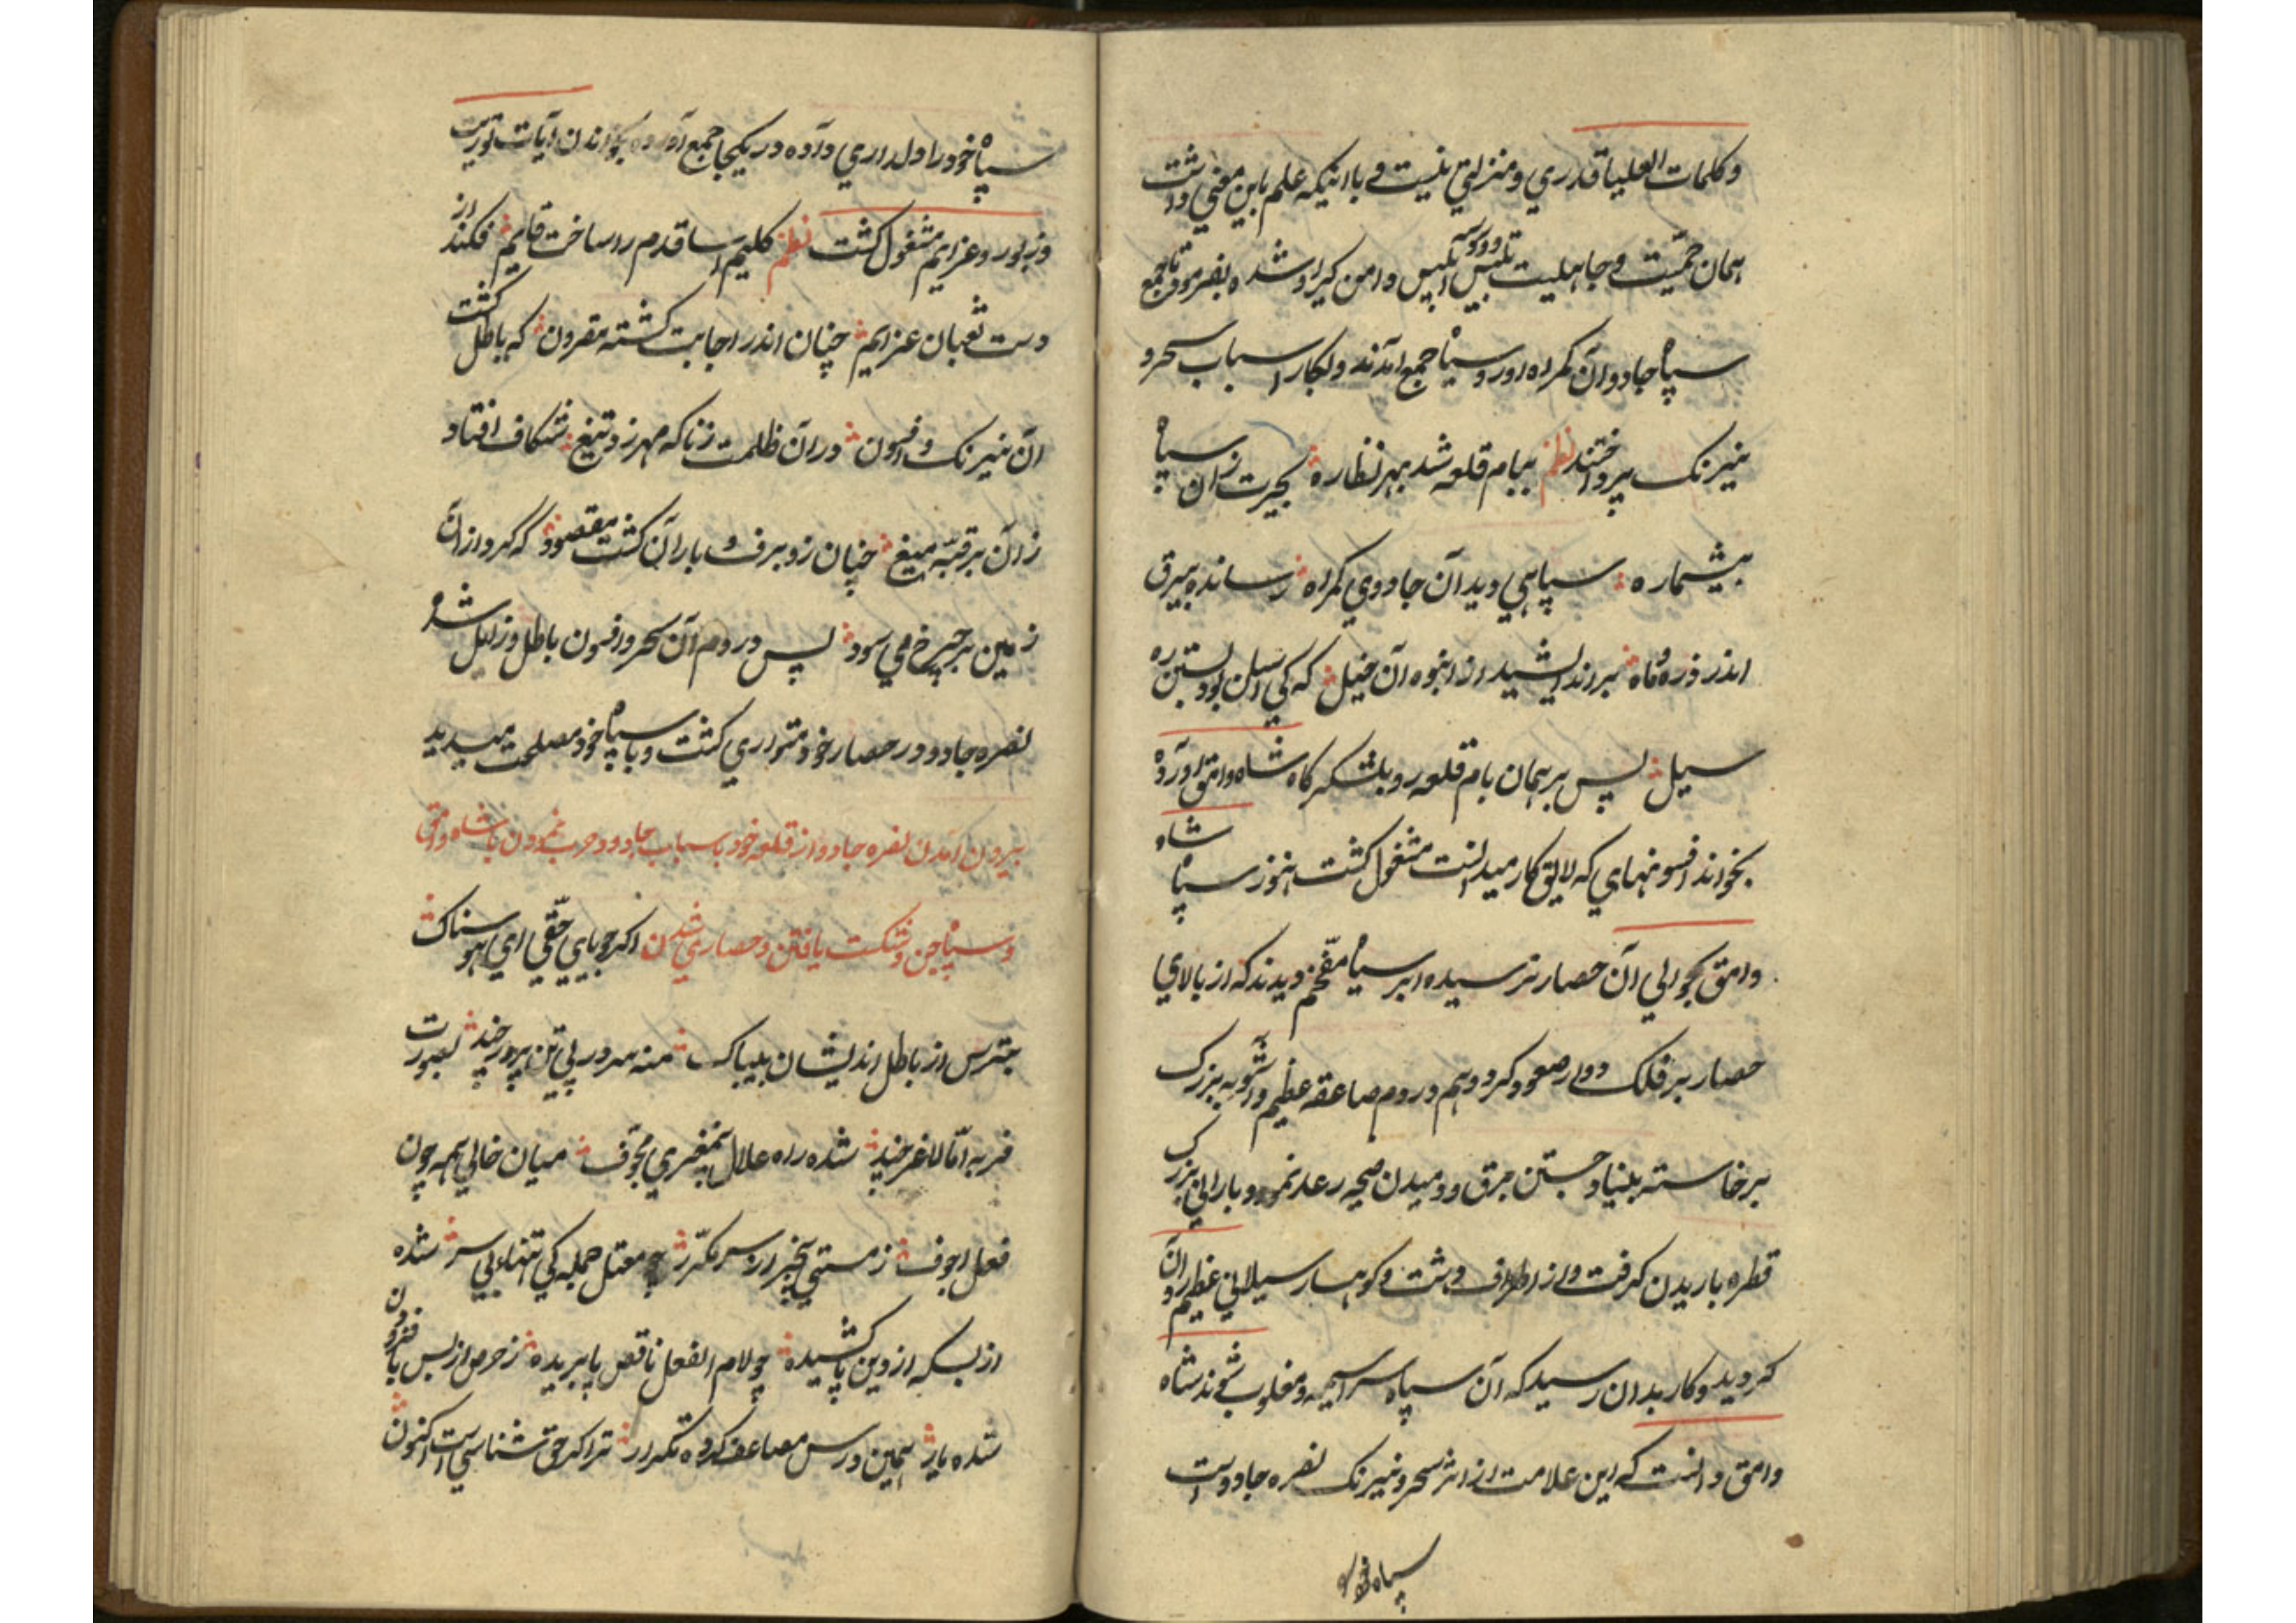 وکلمات العلیا قدری ومنزلتی نیست و با اینکه علم باین معنی داشت
همان حمیت و جاهلیت تلبیس ابلیس دامن کیر او شده بفرمود تا جمع
سپاه جادوان کمراه و رو سیاه جمع آمدند و بکار اسباب سحر و
نیرنک پرداختند نظم ببام قلعه شد بهر نظاره بحیرت زان سپاه
بیشماره سپاهی دید آن جادوی کمراه رسانده بیرق
اندر ذره ماه براندیشید از انبوه آن خیل که کی آسان بود بستن ره
سیل پس بر همان بام قلعه رو بلشکرکاه شاه وامق آورد
بخواند افسونهای که لایق کار میدانست مشغول کشت هنوز سپاه شاه
وامق بحوالی آن حصار نرسیده ابر سیاه مفخم دیدند که از بالای
حصار بر فلک دوار صعود کرد و هم در دم صاعقه عظیم و آشوبه بزرک
برخاسته بنیاد جستن برق و دمیدن صیحه رعد نمود و بارانی بزرک
قطره باریدن کرفت و از اطراف دشت و کوهسار سیلابی عظیم روان
کردید و کار بدان رسید که آن سپاه سراسیمه و مغلوب شوند شاه
وامق دانست که این علامت از اثر سحر و نیرنک نفره جادو است
سپاه خود را
سپاه خود را دلداری داده در یکجا جمع آورده بخواندن آیات توریت
وزبور و عزایم مشغول کشت نظم کلیم آسا قدم را ساخت قایم فکند از
دست ثعبان عزایم چنان اندر اجابت کشته مقرون که باطل کشت
آن نیرنک و افسون در آن ظلمت زناکه مهر زد تیغ شکاف افتاد
زان بر قبه میغ چنان زد برف و باران کشت مقصود که کرد از آن
زمین بر چرخ می سود پس در دم آن سحر و افسون باطل و زایل شد و
نفره جادو در حصار خود متواری کشت و با سپاه خود مصلحت میدید
بیرون آمدن نفره جادو از قلعه خود باسباب جادو و حرب نمودن با شاه وامق
و سپاه جن و شکست یافتن و حصاری شدن اکر جویای حقی ای هوسناک
بترس از باطل اندیشان بیباک منه سر در پی تن پرور چند بصورت
فربه اما لاغر چند شده راه علالی مغزی مجوف میان خالی همه چون
فعل اجوف ز مستی بیخبر از سر مکرر چو معتل جمله کی تنها بی سر شده
از بسکه از دین پا کشیده چو لام الفعل ناقص پا بریده ز حرص از بس با فزون
شده یار همین درس مضاعف کرده تکرار ترا کر حق شناسی است اکنون